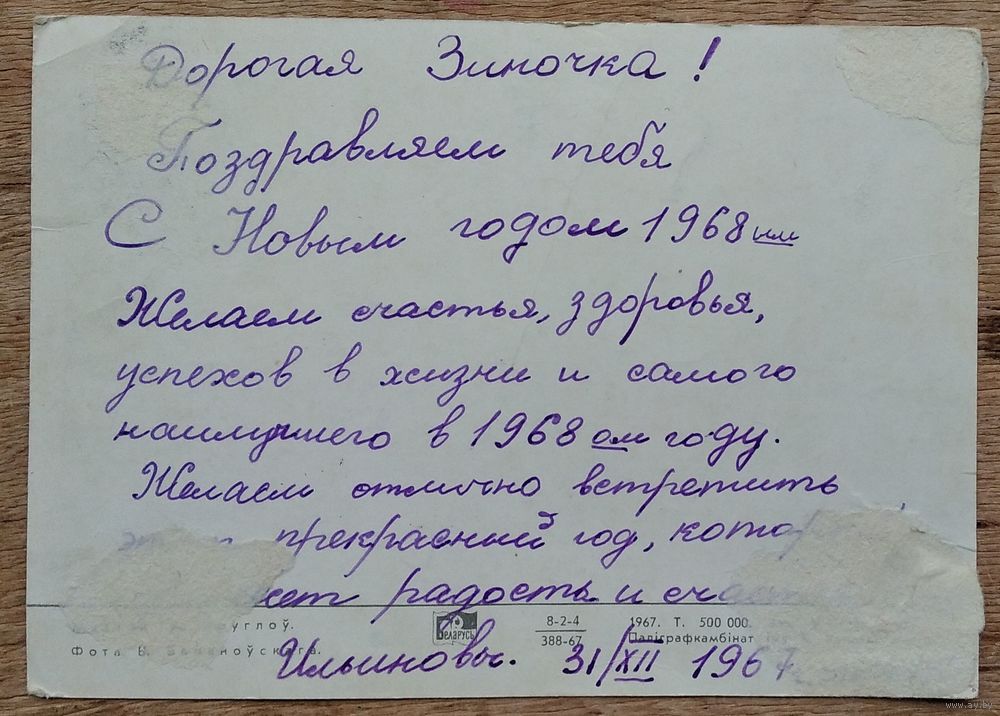 Дорогая Зиночка!
Поздравляем тебя
С Новым годом 1968 ым
Желаем счастья, здоровья,
успехов в жизни и самого
наилучшего в 1968 ом году.
Желаем отлично встретить
прекрасный год,
радость и
углоў.
Беларусь
8-2-4
388-67
1967. Т. 500 000.
Паліграфкамбінат
Фота В.
Ильиновы. 31/XII 1967
www.ay.by